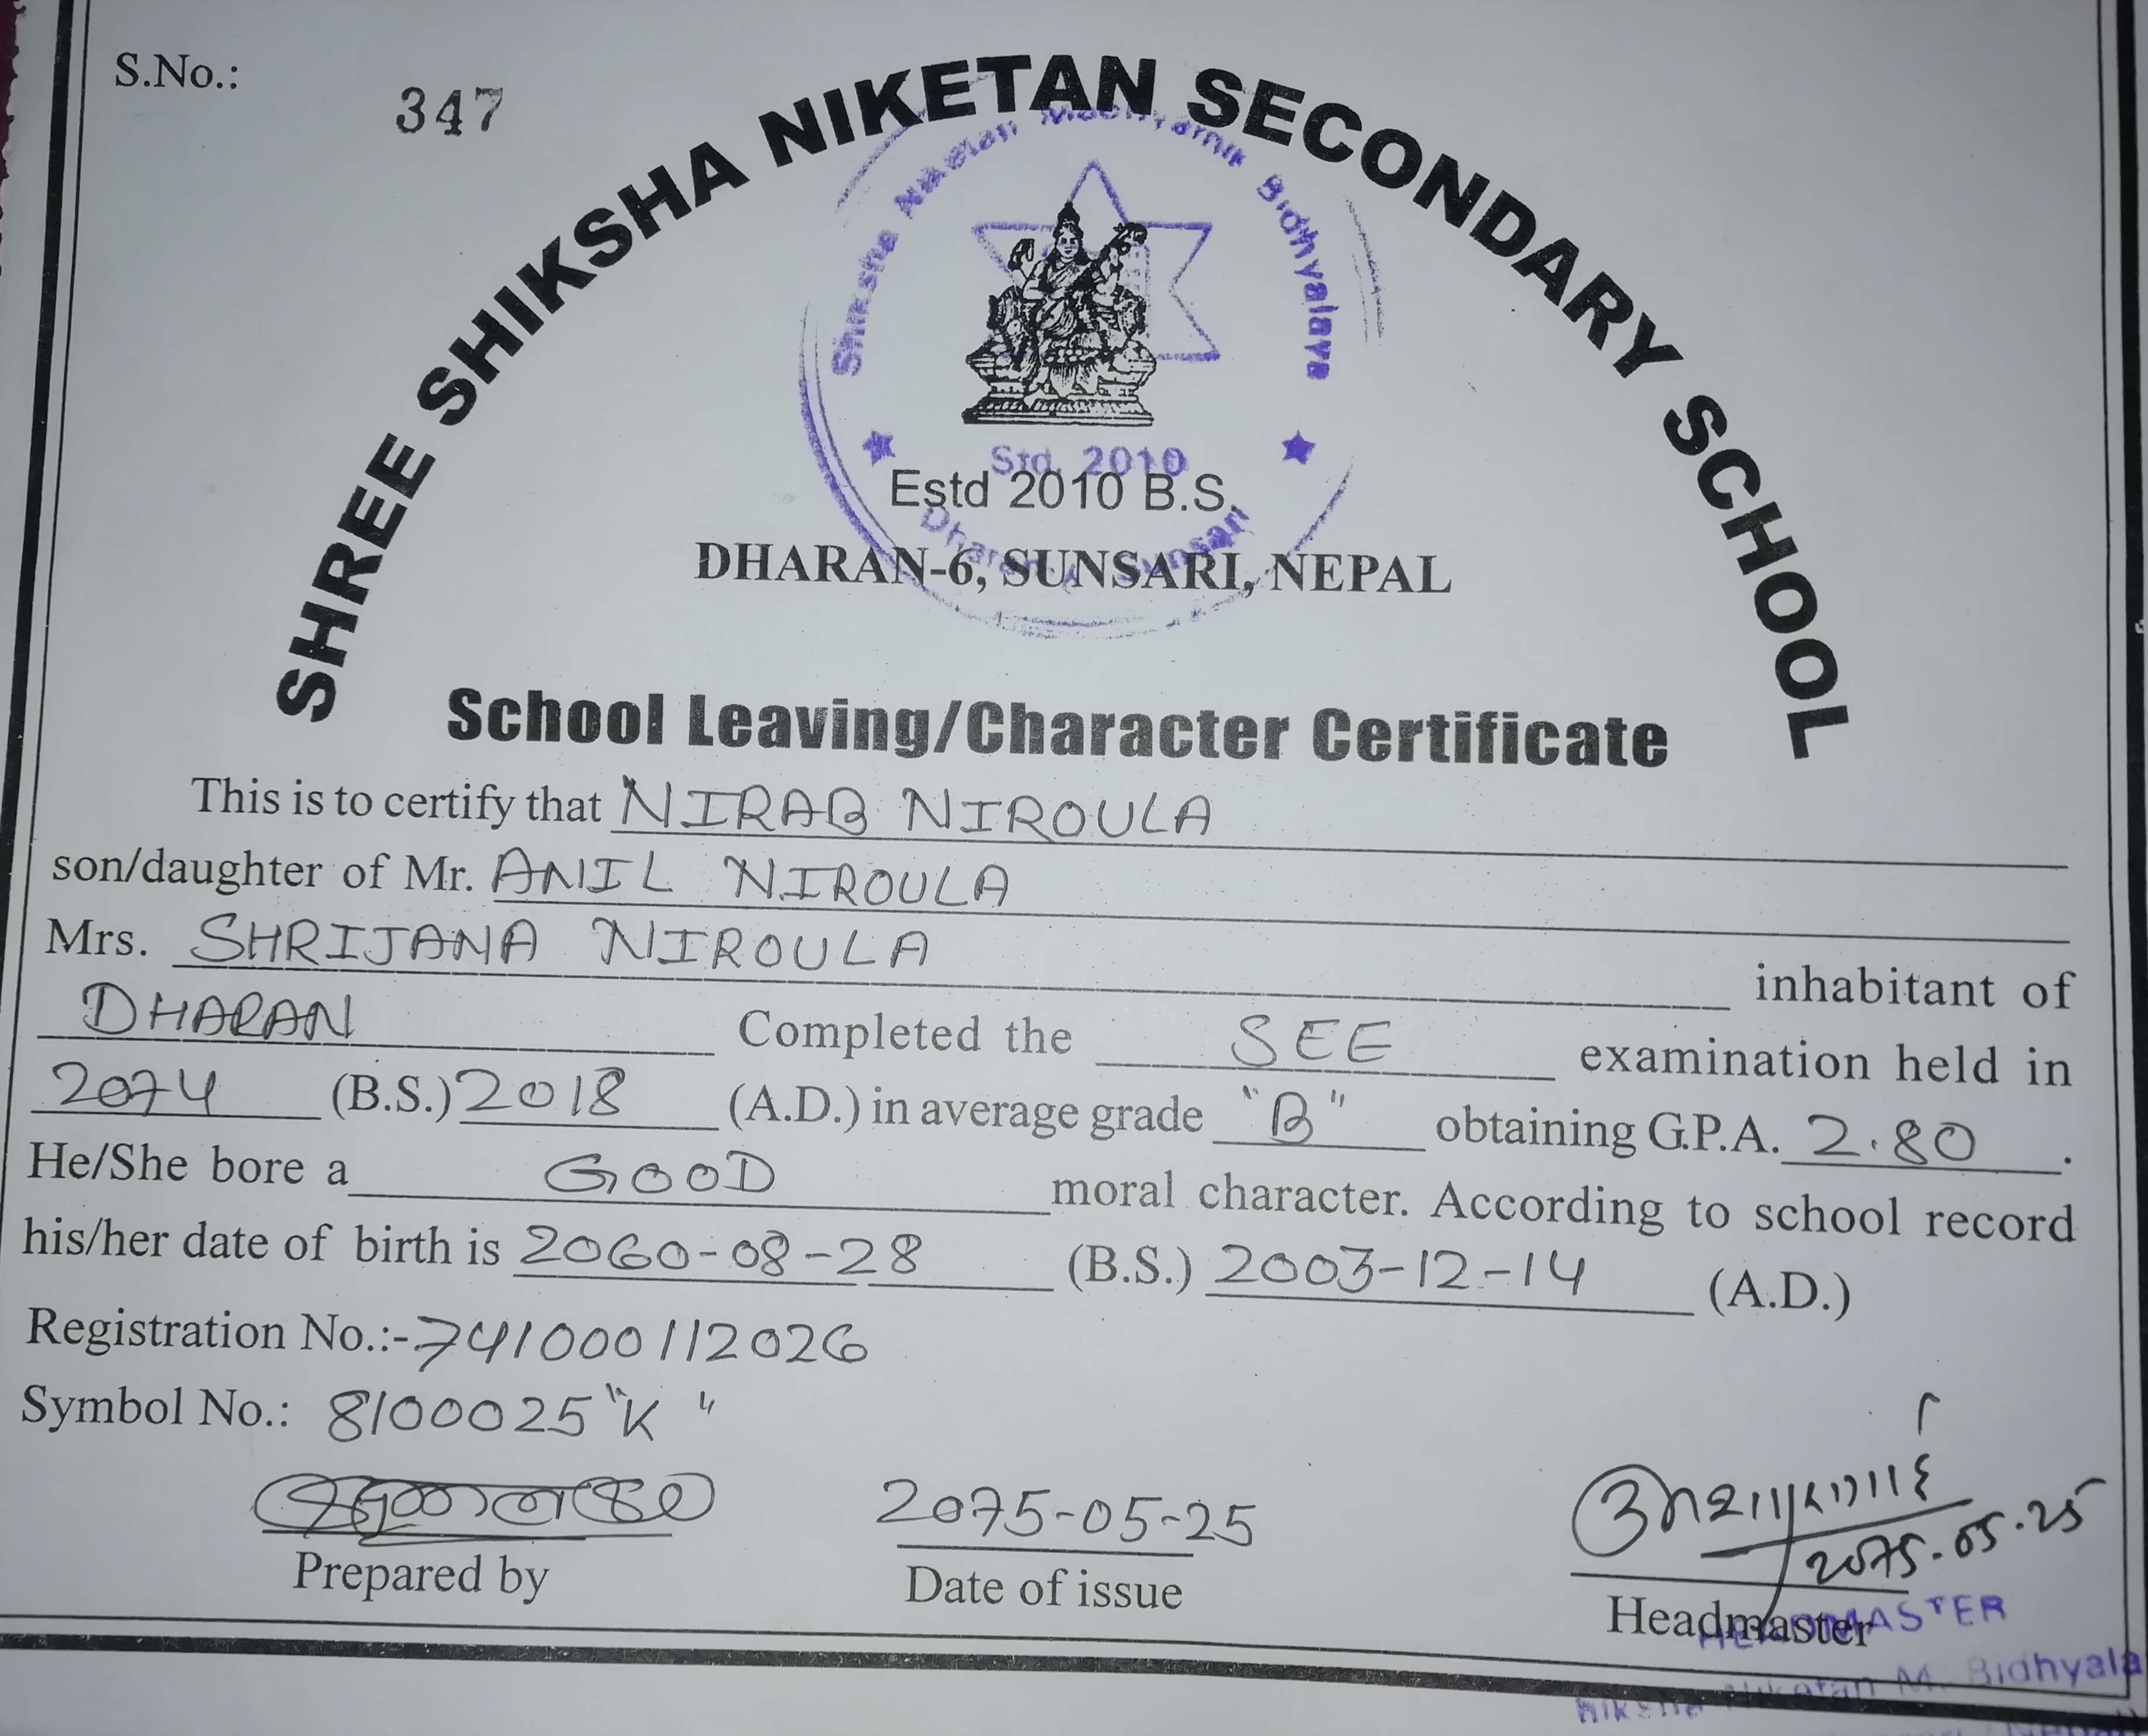 S.No.: 347
SHREE SHIKSHA NIKETAN SECONDARY SCHOOL
Shiksha Niketan Madhyamik Bidhyalaya
Std. 2010
Estd 2010 B.S.
Dharan Sunsari
DHARAN-6, SUNSARI, NEPAL
School Leaving/Character Certificate
This is to certify that NIRAB NIROULA
son/daughter of Mr. ANIL NIROULA
Mrs. SHRIJANA NIROULA inhabitant of
DHARAN Completed the SEE examination held in
2074 (B.S.) 2018 (A.D.) in average grade "B" obtaining G.P.A. 2.80.
He/She bore a GOOD moral character. According to school record
his/her date of birth is 2060-08-28 (B.S.) 2003-12-14 (A.D.)
Registration No.:-741000112026
Symbol No.: 8100025 "K"
2075-05-25
2075.05.25
Prepared by Date of issue Headmaster
HEADMASTER
Niketan M. Bidhyala